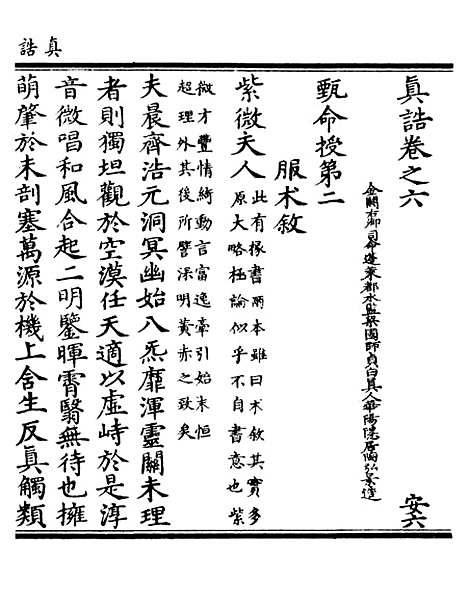 真誥
真誥卷之六
安六
金闕右卿司命蓬萊都水監梁國師貞白真人華陽隱居陶弘景造
甄命授第二
服朮敘
紫微夫人
此有掾書兩本雖曰朮敘其實多
原大略極論似乎不自書意也紫
微才豐情綺動言富逸牽引始末恒
超理外其後所譬深明黃赤之致矣
夫晨齊浩元洞冥幽始八炁靡渾靈關未理
者則獨坦觀於空漠任天適以虛峙於是淳
音微唱和風合起二明鑒暉霄翳無待也擁
萌肇於未剖塞萬源於機上含生反真觸類